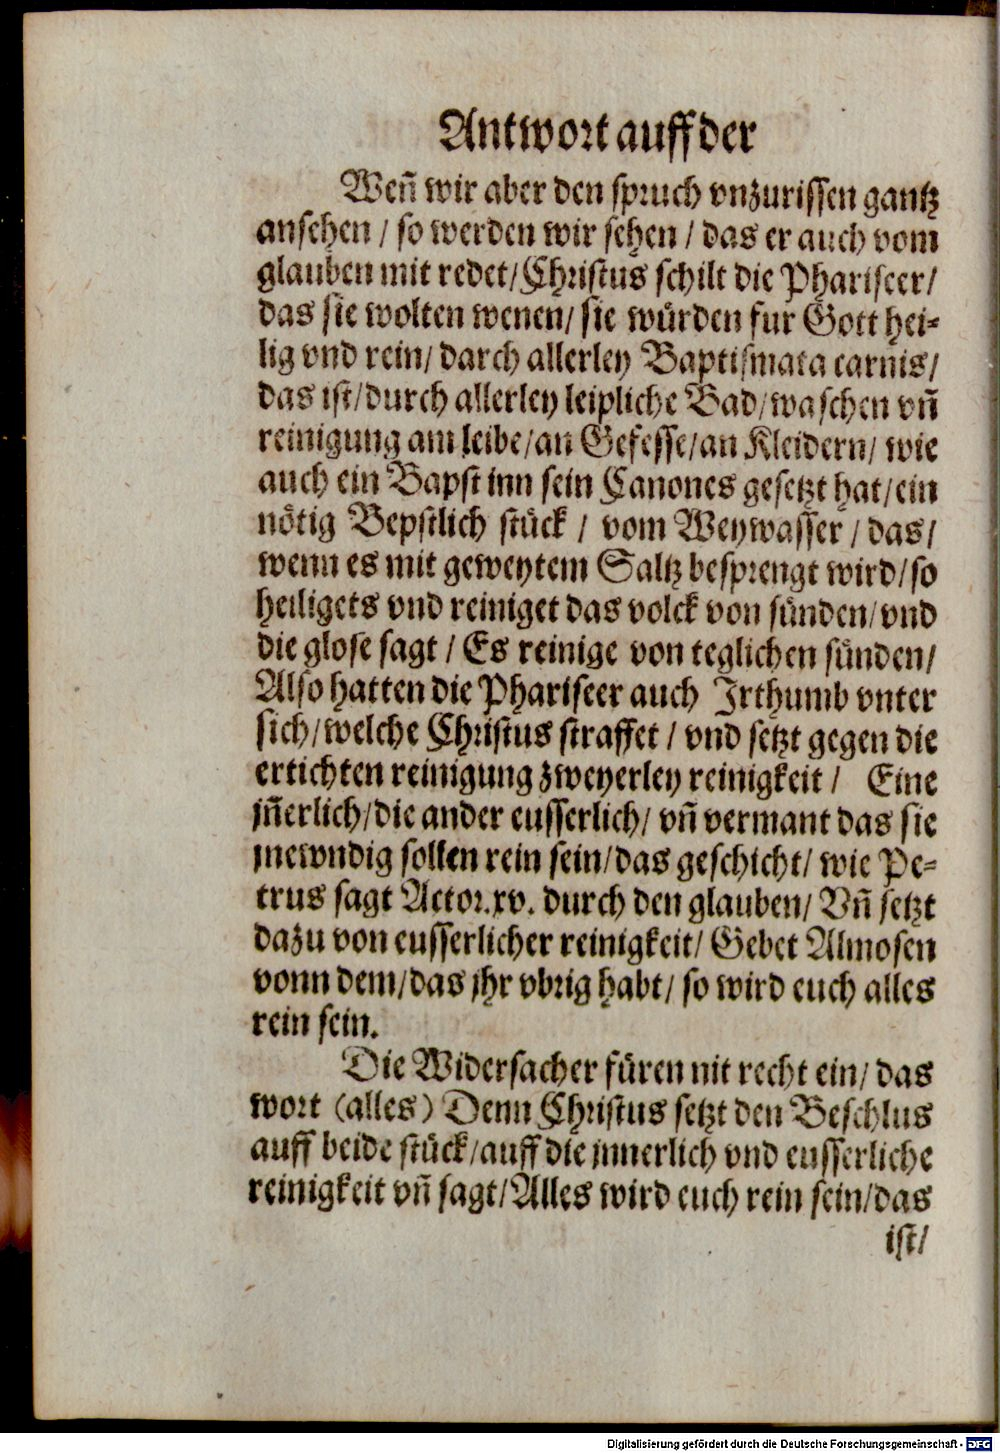 Antwort auff der
Weñ wir aber den spruch vnzurissen gantz
ansehen / so werden wir sehen / das er auch vom
glauben mit redet/Christus schilt die Phariseer/
das sie wolten wenen/ sie würden fur Gott hei-
lig vnd rein/ darch allerley Baptismata carnis/
das ist/durch allerley leipliche Bad/waschen vñ
reinigung am leibe/an Gefesse/an Kleidern/ wie
auch ein Bapst inn sein Canones gesetzt hat/ein
nötig Bepstlich stück / vom Weywasser / das/
wenn es mit geweytem Saltz besprengt wird/so
heiligets vnd reiniget das volck von sünden/vnd
die glose sagt / Es reinige von teglichen sünden/
Also hatten die Phariseer auch Irthumb vnter
sich/welche Christus straffet / vnd setzt gegen die
ertichten reinigung zweyerley reinigkeit / Eine
jñerlich/die ander eusserlich/ vñ vermant das sie
jnewndig sollen rein sein/das geschicht/ wie Pe-
trus sagt Actor.xv. durch den glauben/ Vñ setzt
dazu von eusserlicher reinigkeit/ Gebet Almosen
vonn dem/das jhr vbrig habt/ so wird euch alles
rein sein.
Die Widersacher füren nit recht ein/ das
wort (alles) Denn Christus setzt den Beschlus
auff beide stück/auff die jnnerlich vnd eusserliche
reinigkeit vñ sagt/Alles wird euch rein sein/das
ist/
Digitalisierung gefördert durch die Deutsche Forschungsgemeinschaft - DFG